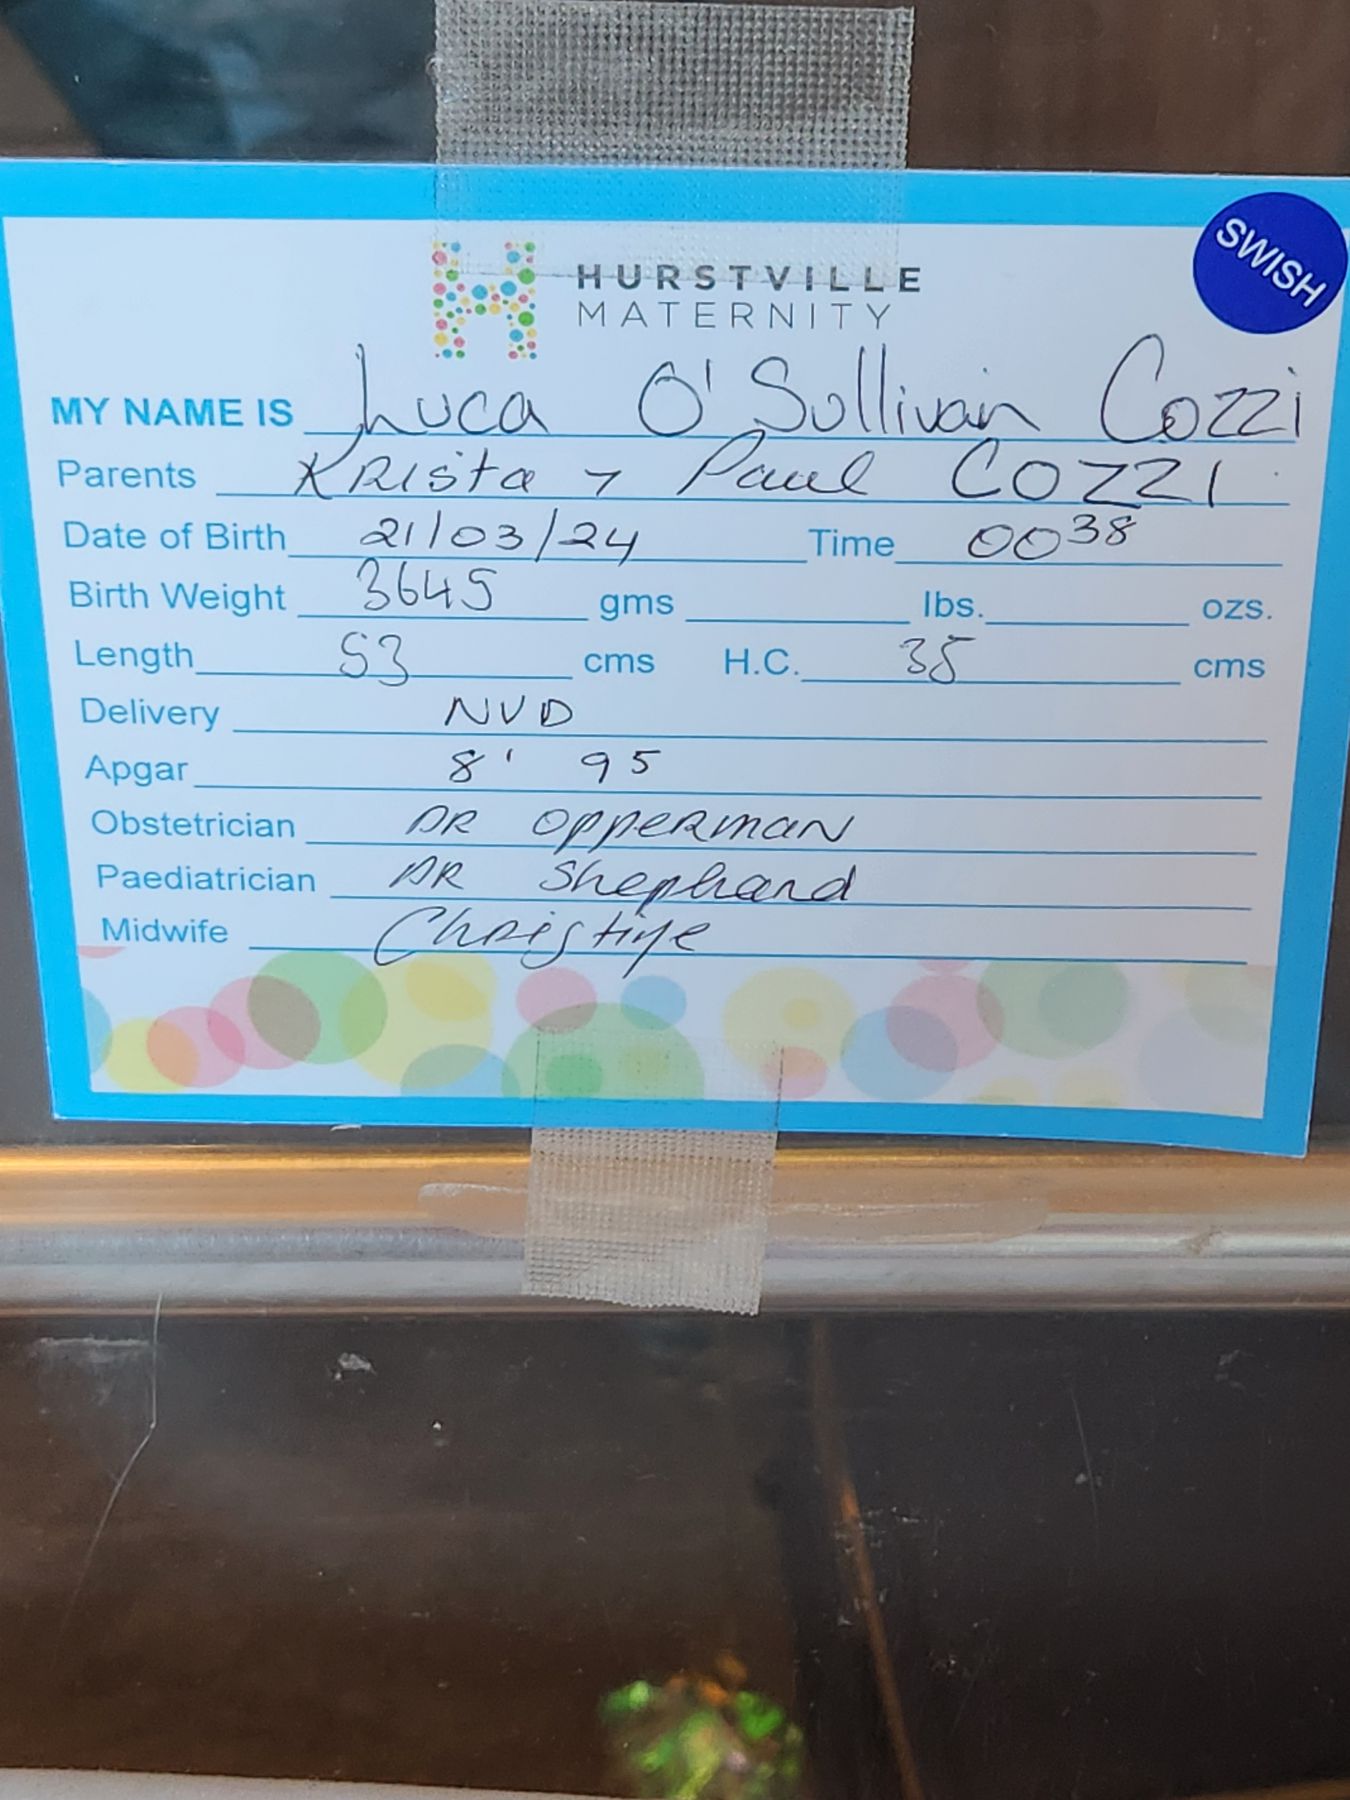 SWISH
HURSTVILLE
MATERNITY
MY NAME IS Luca O'Sullivan Cozzi
Parents Krista & Paul COZZI
Date of Birth 21/03/24 Time 0038
Birth Weight 3645 gms lbs. ozs.
Length 53 cms H.C. 35 cms
Delivery NVD
Apgar 8' 95
Obstetrician DR OPPERMAN
Paediatrician DR Shephard
Midwife Christine